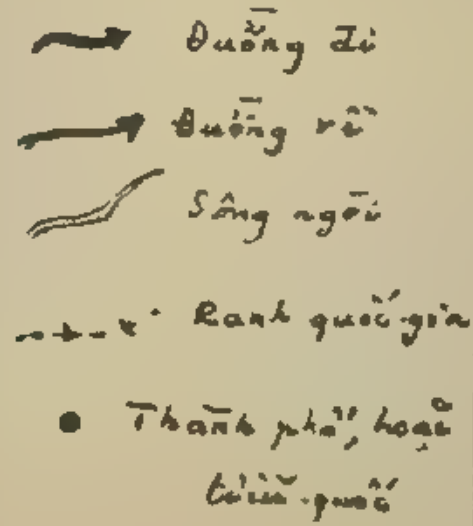 Đường đi
Đường về
Sông ngòi
Ranh quốc-gia
Thành phố, hoặc
tiểu-quốc